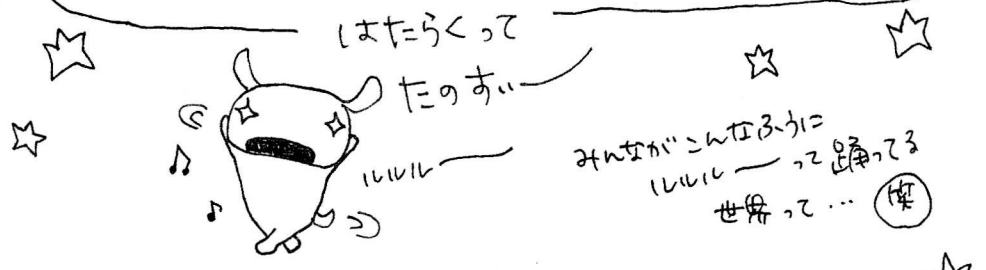 はたらくって
たのすぃー
ルルルー
みんながこんなふうに
ルルルー って踊ってる
世界って… 笑